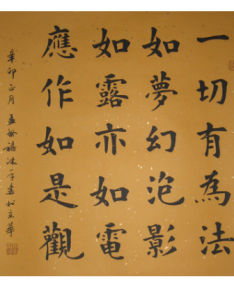 一切有為法
如夢幻泡影
如露亦如電
應作如是觀
辛卯正月